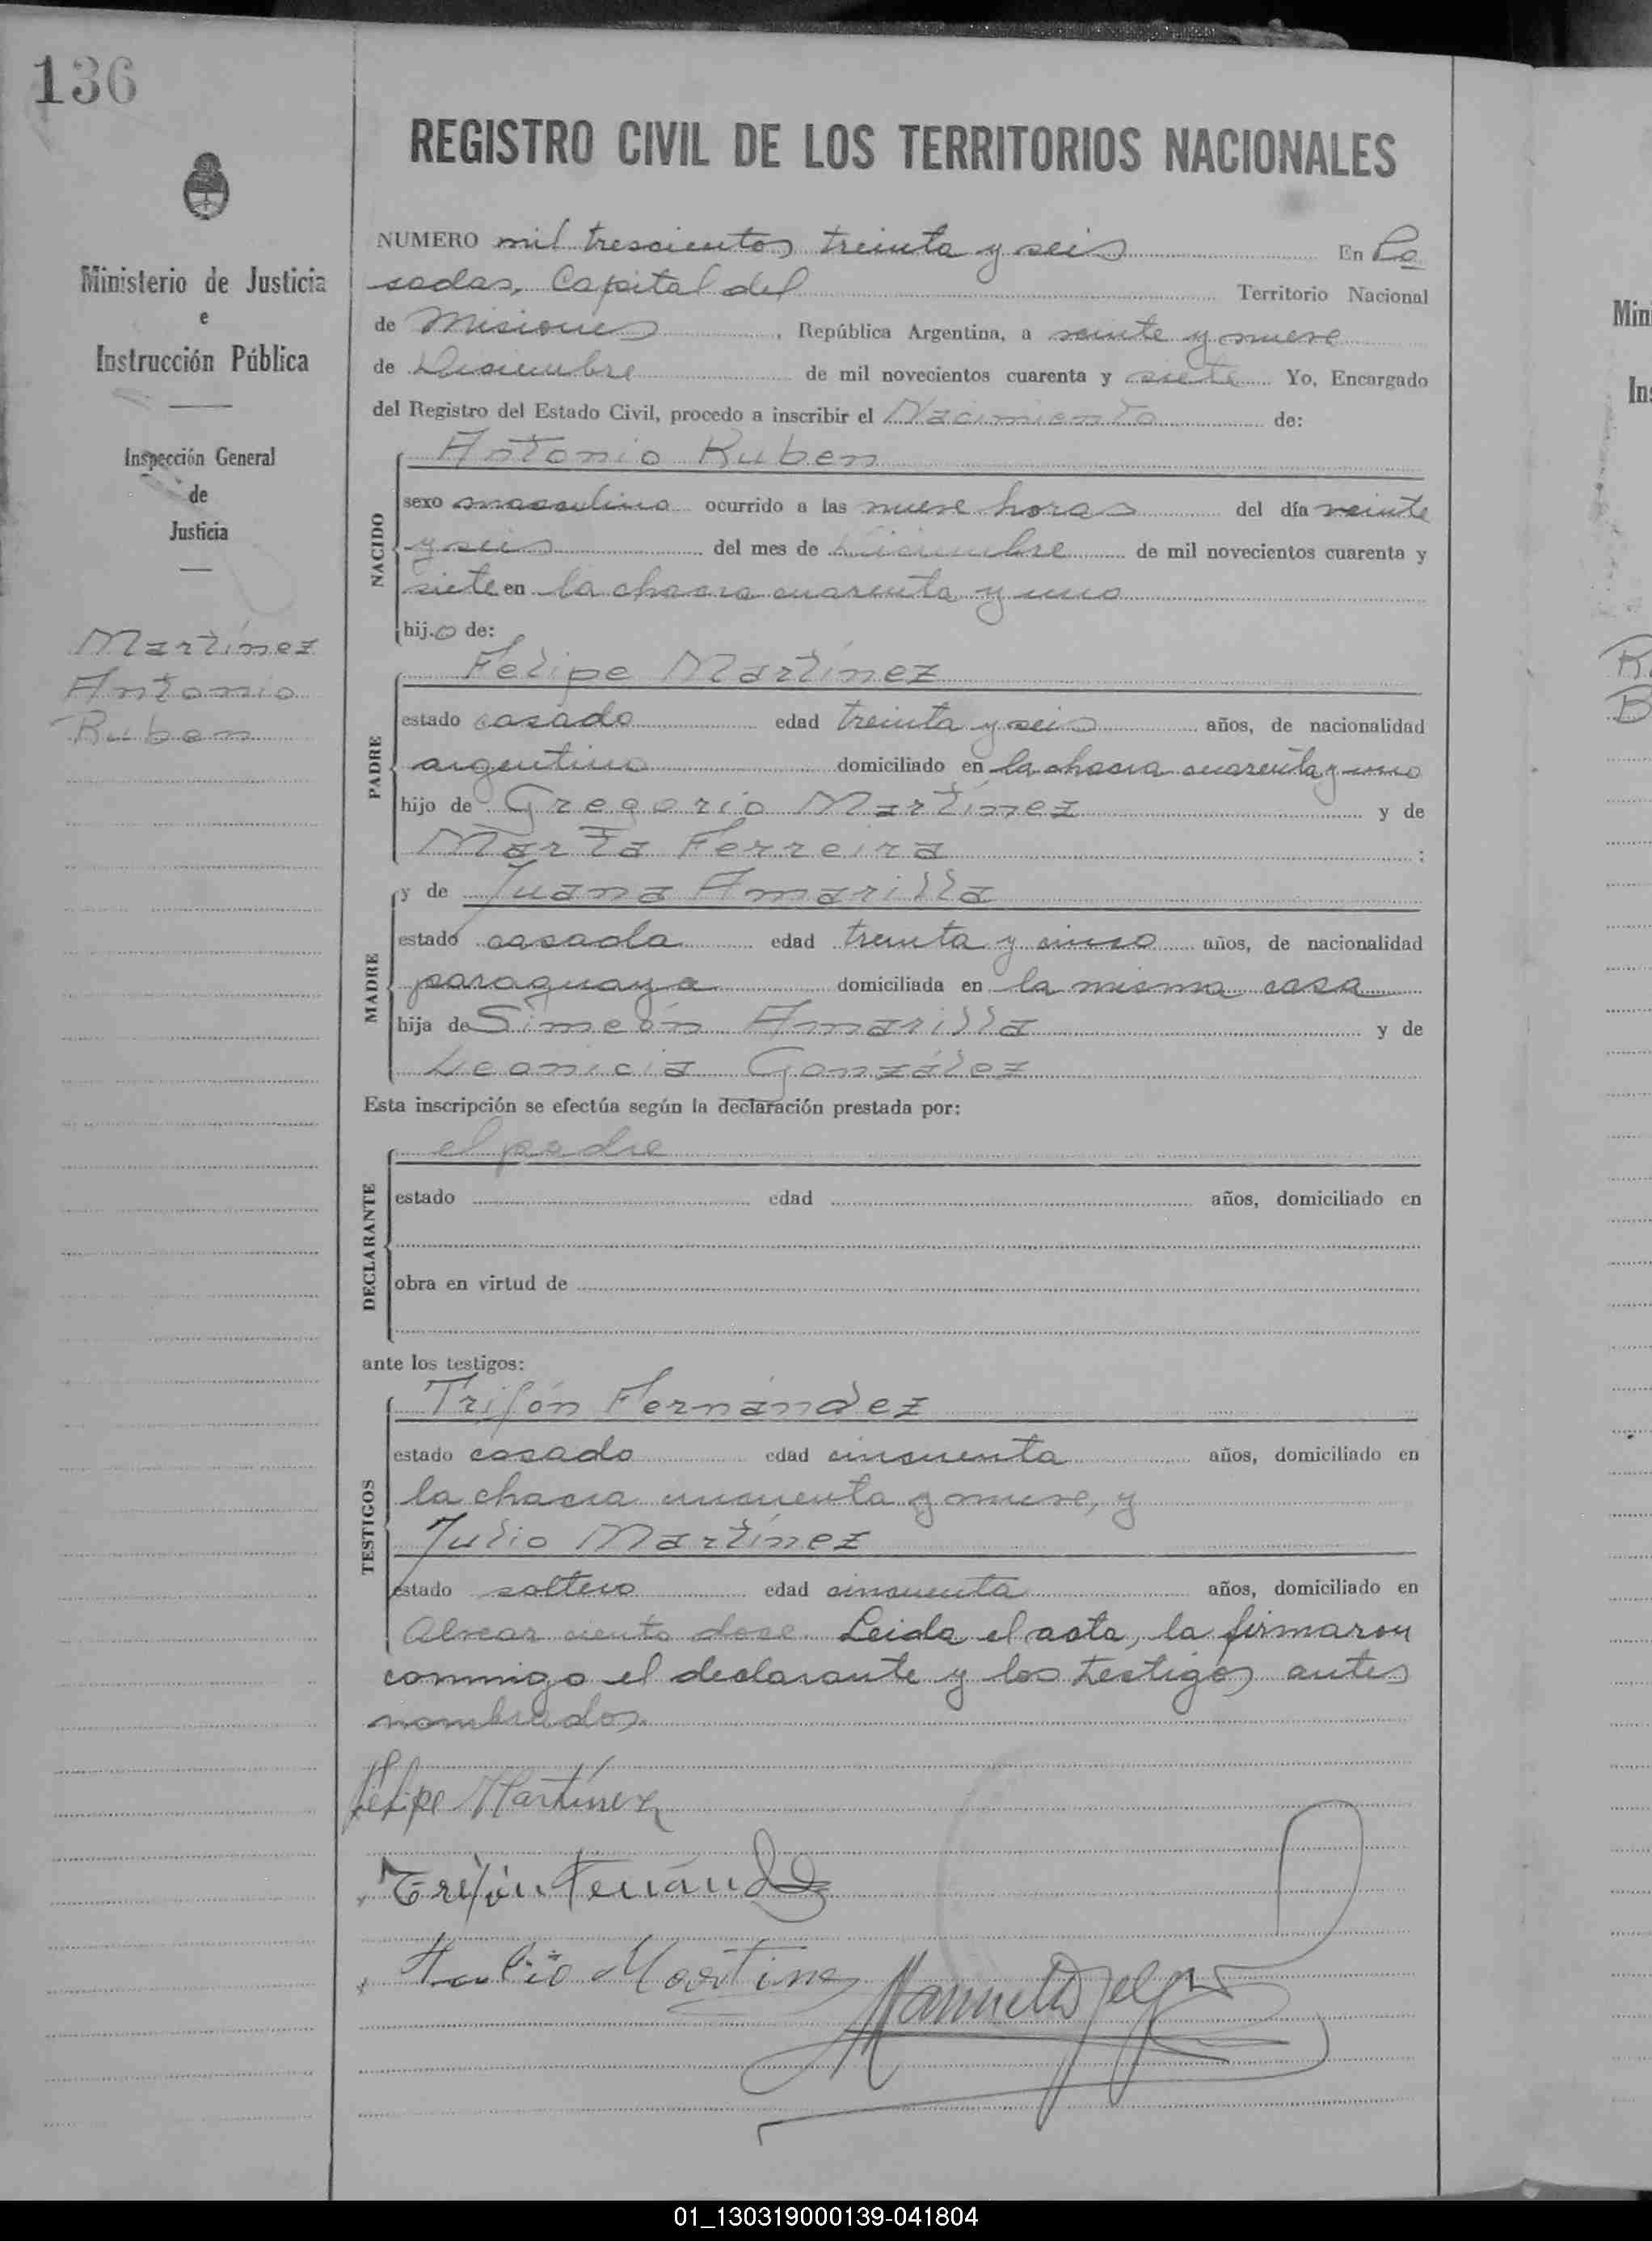 136
REGISTRO CIVIL DE LOS TERRITORIOS NACIONALES
Ministerio de Justicia
e
Instrucción Pública
Inspección General
de
Justicia
Martínez
Antonio
Ruben
NUMERO mil trescientos treinta y seis En Po
sadas, Capital del Territorio Nacional
de Misiones, República Argentina, a veinte y nueve
de Diciembre de mil novecientos cuarenta y siete Yo, Encargado
del Registro del Estado Civil, procedo a inscribir el Nacimiento de:
NACIDO
Antonio Ruben
sexo masculino ocurrido a las nueve horas del día veinte
y seis del mes de Diciembre de mil novecientos cuarenta y
siete en la chacra cuarenta y uno
hij.o de:
PADRE
Felipe Martínez
estado casado edad treinta y seis años, de nacionalidad
argentino domiciliado en la chacra cuarenta y uno
hijo de Gregorio Martínez y de
Marta Ferreira ;
MADRE
y de Juana Amarilla
estado casada edad treinta y cinco años, de nacionalidad
paraguaya domiciliada en la misma casa
hija de Simeón Amarilla y de
Leonicia González
Esta inscripción se efectúa según la declaración prestada por:
DECLARANTE
el padre
estado edad años, domiciliado en
obra en virtud de
ante los testigos:
TESTIGOS
Trifón Fernández
estado casado edad cincuenta años, domiciliado en
la chacra cincuenta y nueve, y
Julio Martínez
estado soltero edad cincuenta años, domiciliado en
Alvear ciento doce. Leida el acta, la firmaron
conmigo el declarante y los testigos antes
nombrados.
Felipe Martínez
Trifón Fernández
Julio Martinez
Min
Ins
R
B
01_130319000139-041804